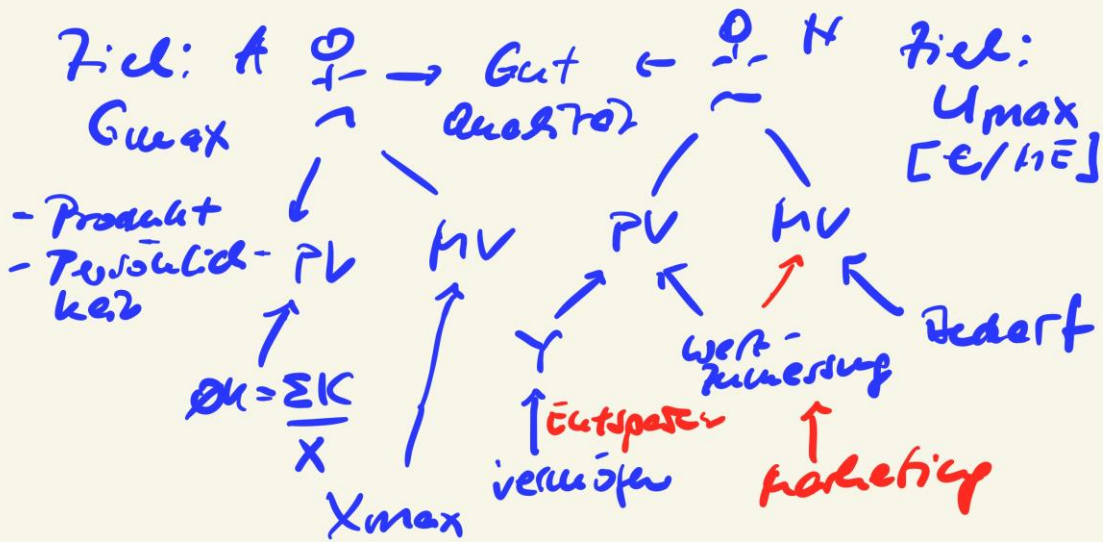 Ziel: A → Gut ← N Ziel:
Gmax Qualität Umax
[€/ME]
- Produkt
- Persönlich-
keit
PV MV PV MV
Y Wert-
zumessung
Bedarf
øK = ΣK
X
Entsparen
Vermögen
Marketing
Xmax